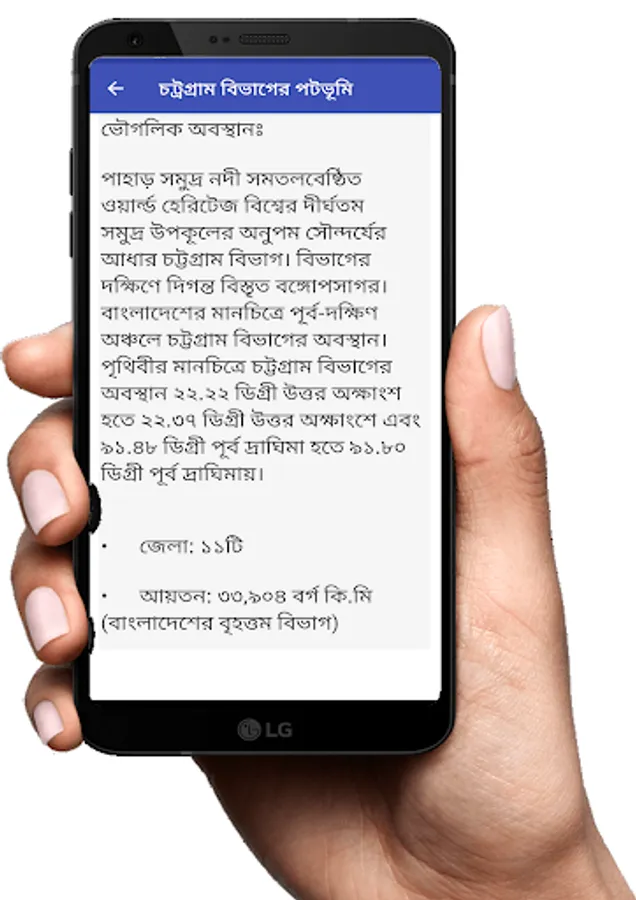 চট্টগ্রাম বিভাগের পটভূমি
ভৌগলিক অবস্থানঃ
পাহাড় সমুদ্র নদী সমতলবেষ্ঠিত
ওয়ার্ল্ড হেরিটেজ বিশ্বের দীর্ঘতম
সমুদ্র উপকূলের অনুপম সৌন্দর্যের
আধার চট্টগ্রাম বিভাগ। বিভাগের
দক্ষিণে দিগন্ত বিস্তৃত বঙ্গোপসাগর।
বাংলাদেশের মানচিত্রে পূর্ব-দক্ষিণ
অঞ্চলে চট্টগ্রাম বিভাগের অবস্থান।
পৃথিবীর মানচিত্রে চট্টগ্রাম বিভাগের
অবস্থান ২২.২২ ডিগ্রী উত্তর অক্ষাংশ
হতে ২২.৩৭ ডিগ্রী উত্তর অক্ষাংশে এবং
৯১.৪৮ ডিগ্রী পূর্ব দ্রাঘিমা হতে ৯১.৮০
ডিগ্রী পূর্ব দ্রাঘিমায়।
• জেলা: ১১টি
• আয়তন: ৩৩,৯০৪ বর্গ কি.মি
(বাংলাদেশের বৃহত্তম বিভাগ)
LG